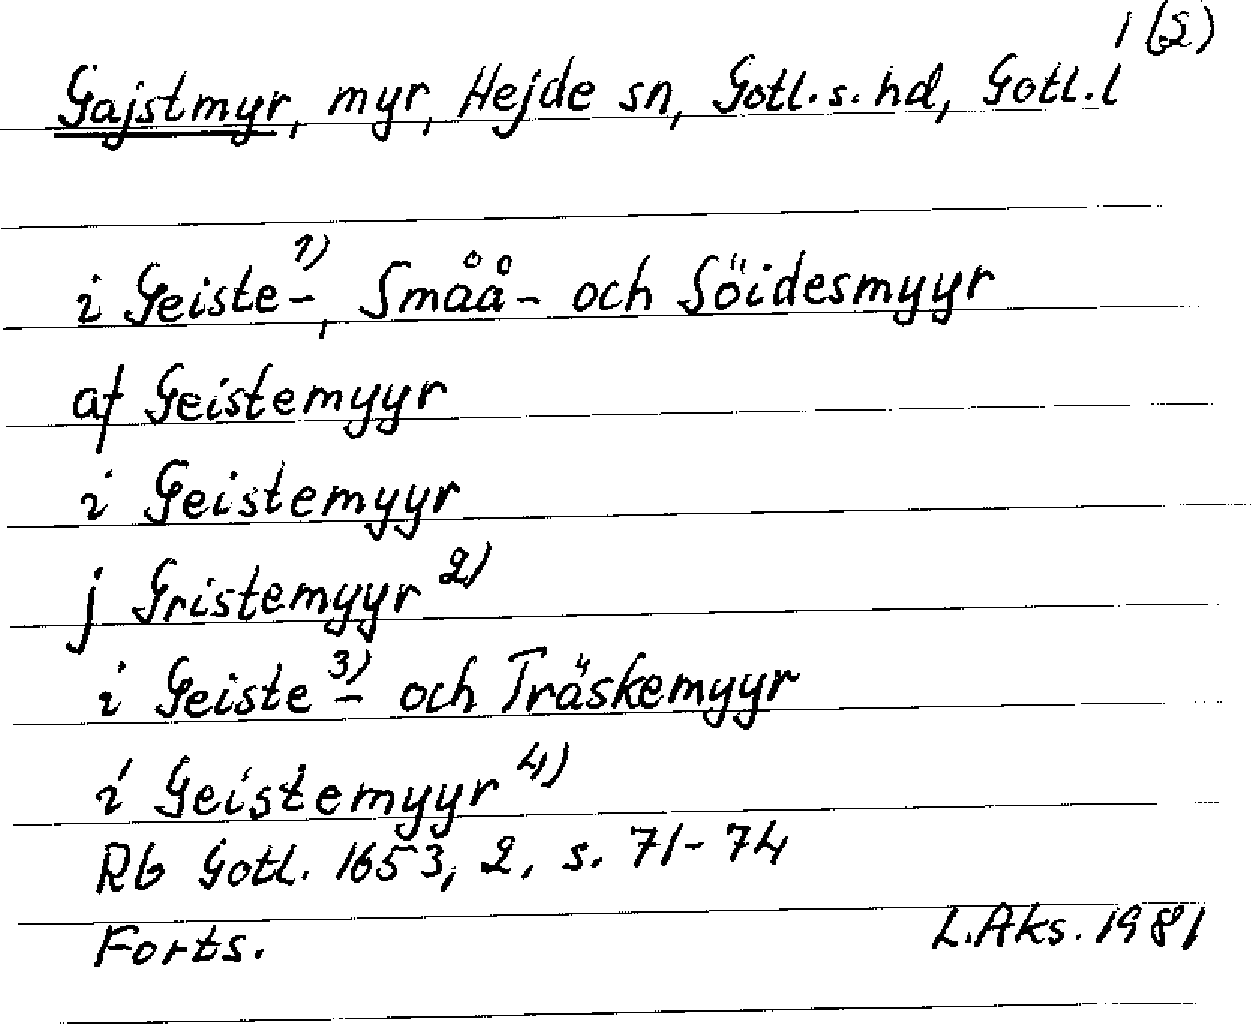 1 (2)
Gajstmyr, myr, Hejde sn, Gotl. s. hd, Gotl. l
i Geiste-¹⁾, Småå- och Söidesmyyr
af Geistemyyr
i Geistemyyr
j Gristemyyr ²⁾
i Geiste ³⁾- och Träskemyyr
i Geistemyyr ⁴⁾
Rb Gotl. 1653, 2, s. 71-74
Forts. L.Aks. 1981